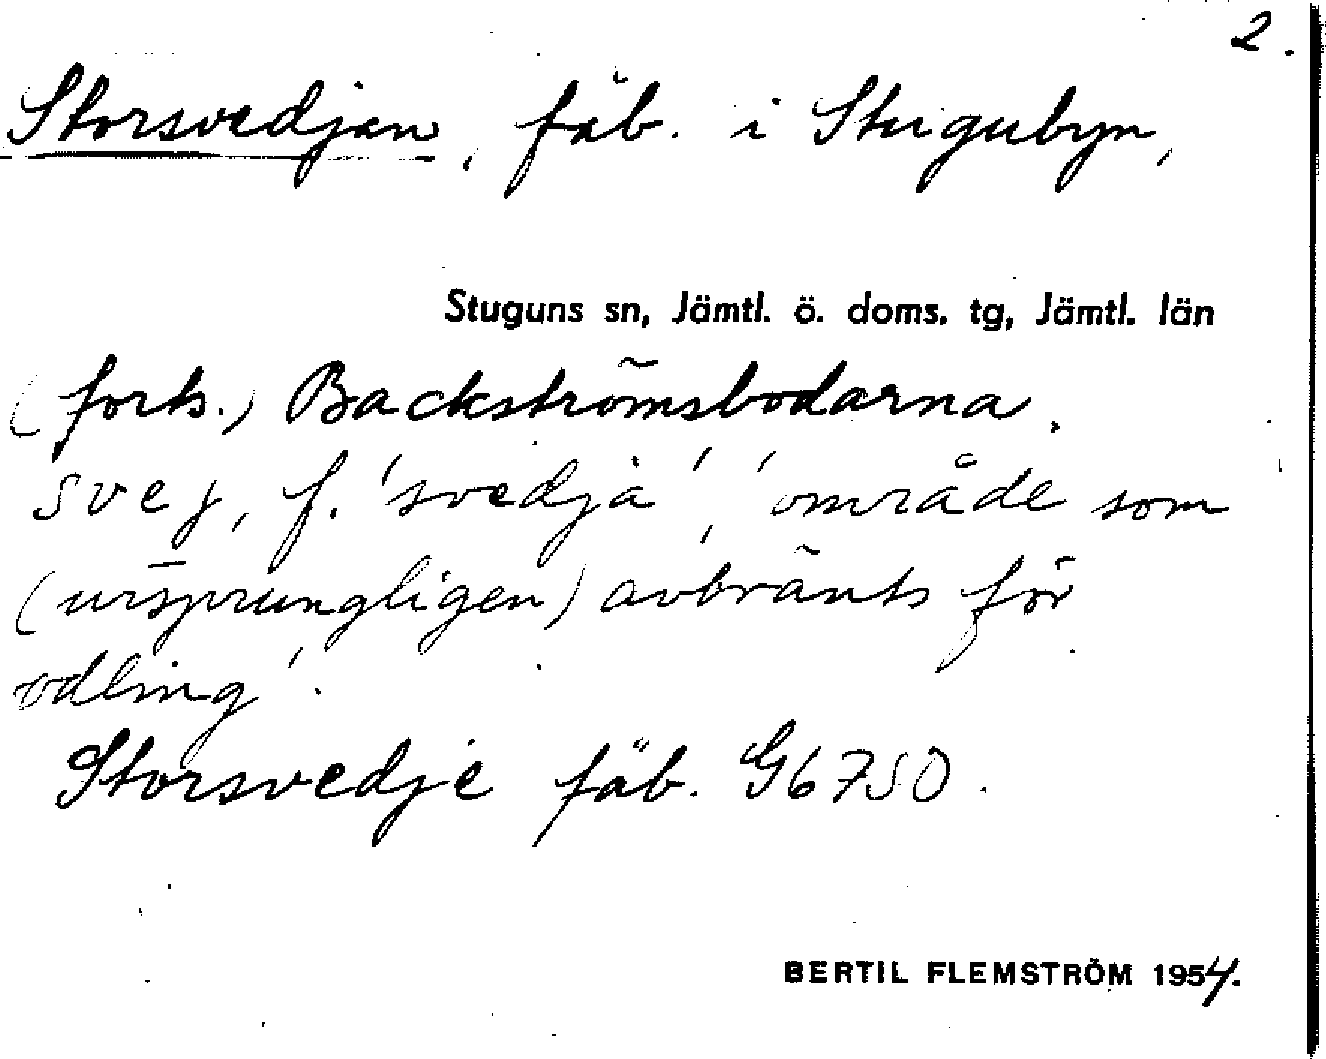 2.
Storsvedjan, fäb. i Stugubyn,
Stuguns sn, Jämtl. ö. doms. tg, Jämtl. län
(forts.) Backströmsbodarna.
svej, f. 'svedja', 'område som
(ursprungligen) avbränts för
odling'.
Storsvedje fäb. G6750.
BERTIL FLEMSTRÖM 1954.